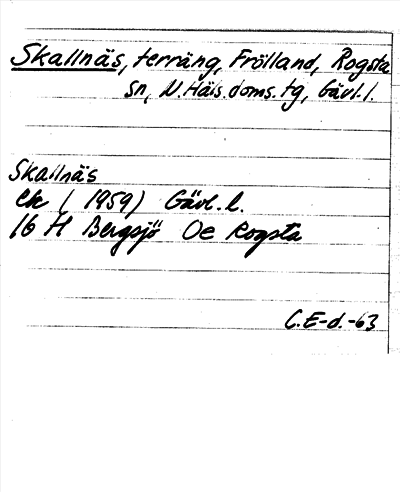 Skallnäs, terräng, Frölland, Rogsta
sn, N. Häls. doms. tg, Gävl. l.
Skallnäs
Ek ( 1959) Gävl. l.
16 H Bergsjö Oe Rogsta
C.E-d.-63